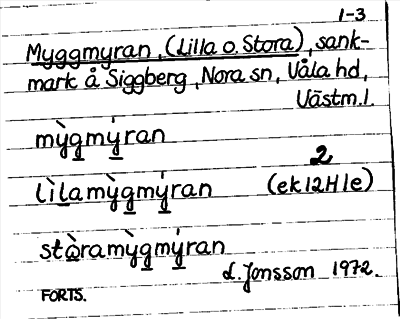 1-3
Myggmyran, (Lilla o. Stora), sank-
mark å Siggberg, Nora sn, Våla hd,
Västm.l.
mỳg̲mý̲ran
2
lìl̲amỳg̲mý̲ran (ek 12H1e)
stὼ̲ramỳg̲mý̲ran
L. Jonsson 1972.
FORTS.